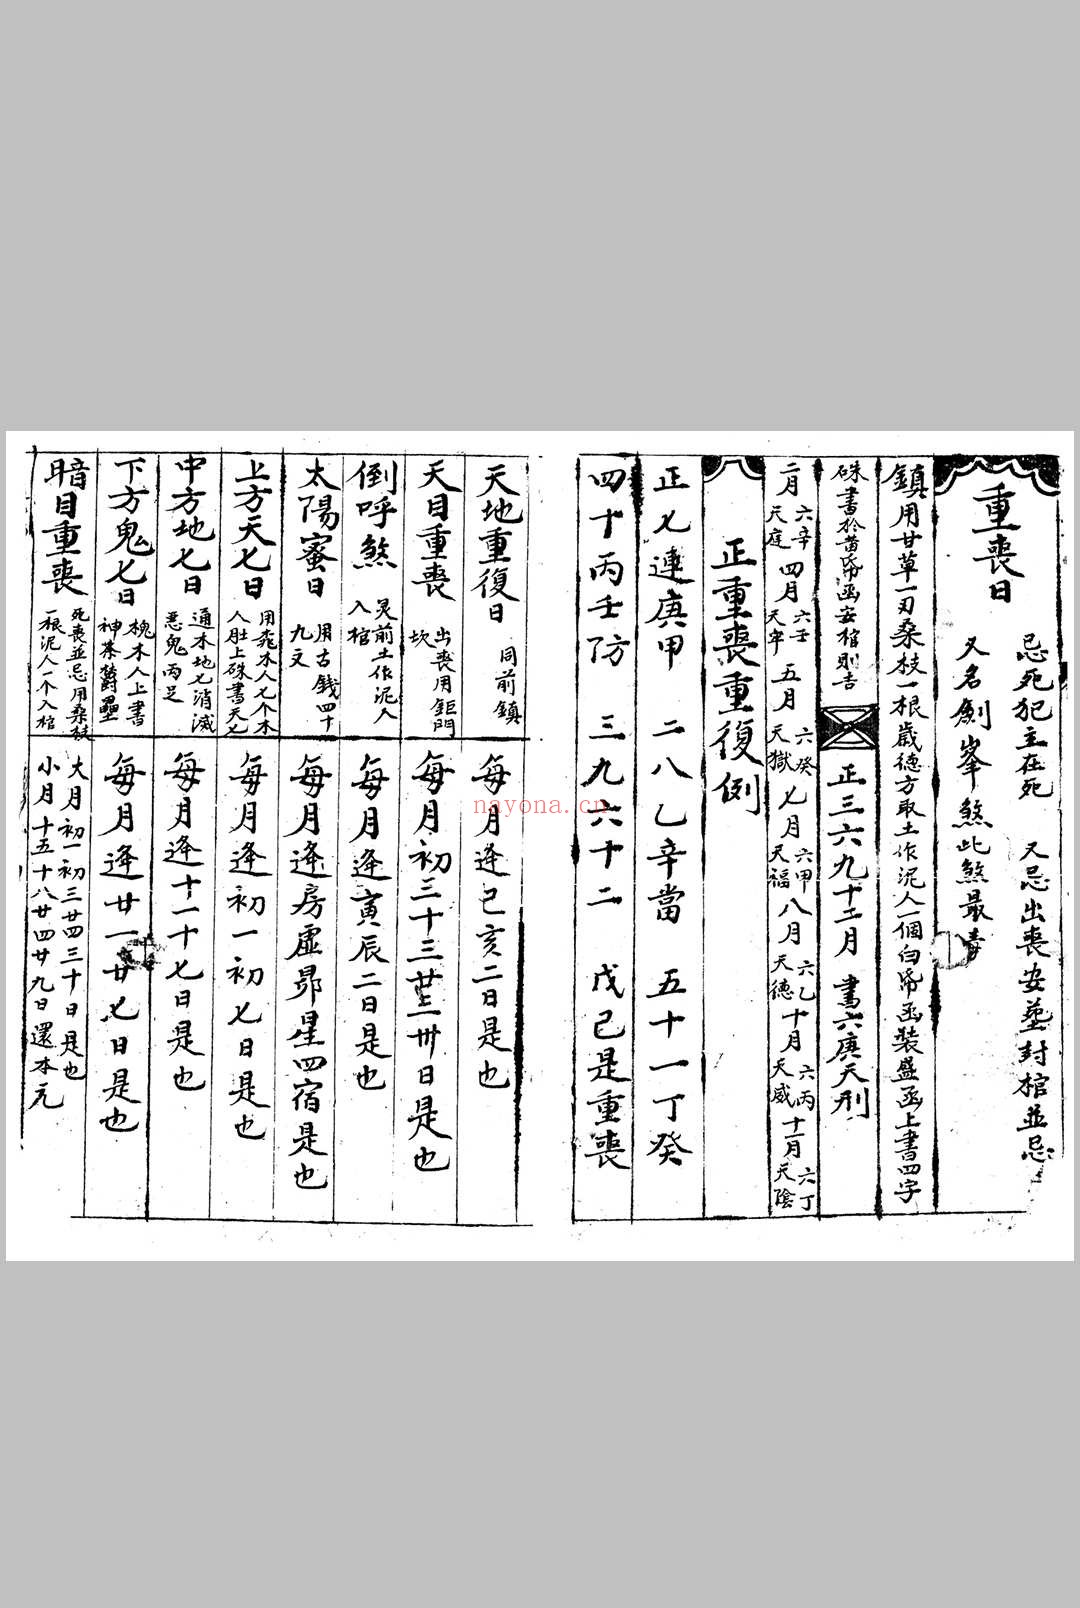 重喪日
忌死犯主在死 又忌出喪安塟封棺並忌
又名劍峯煞此煞最毒
鎮用甘草一刃桑枝一根歲德方取土作泥人一個白帋函裝盛函上書四字
硃書於黄帋函安棺則吉
正三六九十二月 書六庚天刑
二月六辛天庭 四月六壬天牢 五月六癸天獄 七月六甲天福 八月六乙天德 十月六丙天威 十一月六丁天陰
正重喪重復例
正七連庚甲 二八乙辛當 五十一丁癸
四十丙壬防 三九六十二 戊己是重喪
天地重復日 同前鎮
每月逢巳亥二日是也
天目重喪 出喪用鉅門坎
每月初三十三廿三卅日是也
倒呼煞 灵前土作泥人入棺
每月逢寅辰二日是也
太陽蜜日 用古錢四十九文
每月逢房虛昴星四宿是也
上方天七日 用桃木人七个木人肚上硃書天七
每月逢初一初七日是也
中方地七日 通木地七消滅悪鬼两足
每月逢十一十七日是也
下方鬼七日 槐木人上書神荼欝壘
每月逢廿一廿七日是也
暗目重喪 死喪並忌用桑枝一根泥人一个入棺
大月初一初三廿四三十日是也
小月十五十八廿四廿九日還本元
nayona.cn